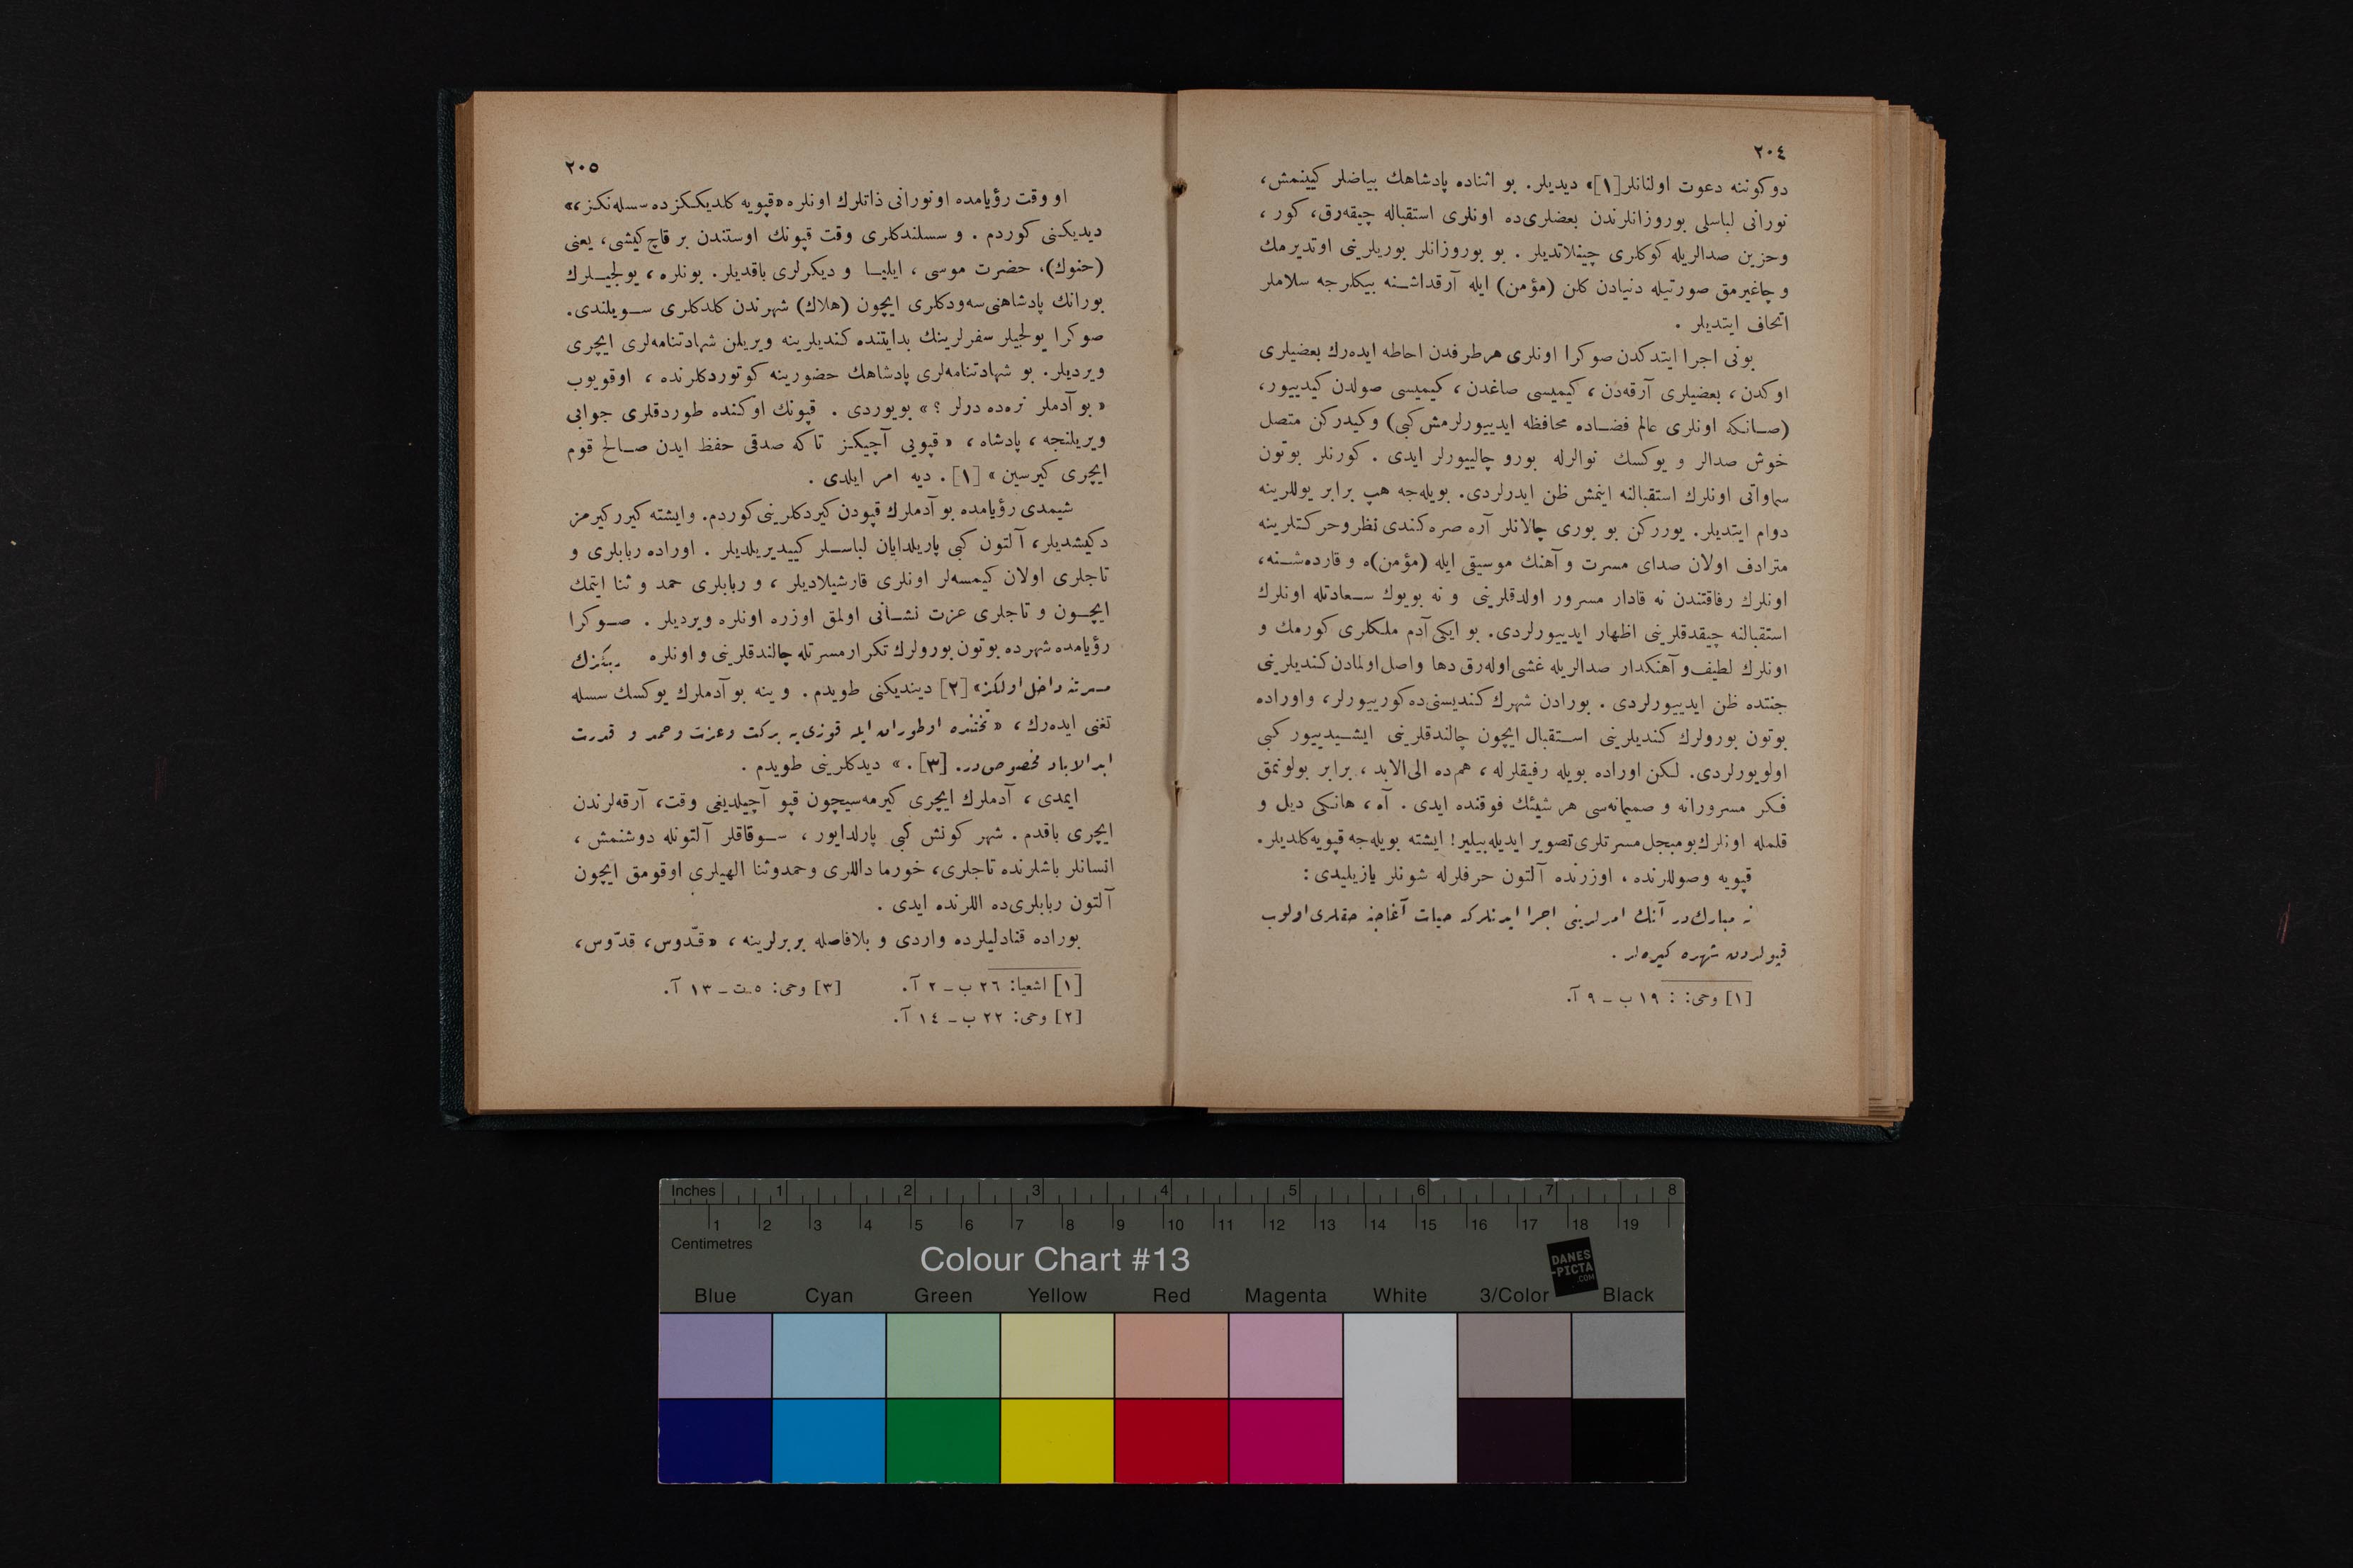 ٢٠٤
دوكوننه دعوت اولنانلر[١]» ديديلر. بو اثناده پادشاهك بياضلر كيينمش،
نورانى لباسلى بوروزانلرندن بعضلرى‌ده اونلرى استقباله چيقه‌رق، كور ،
وحزين صدالريله كوكلرى چينلاتديلر . بو بوروزانلر بوريلرينى اوتديرمك
و چاغيرمق صورتيله دنيادن كلن (مؤمن) ايله آرقداشـنه بيكلرجه سلاملر
اتحاف ايتديلر .
بونى اجرا ايتدكدن صوكرا اونلرى هرطرفدن احاطه ايده‌رك بعضيلرى
اوكدن ، بعضيلرى آرقه‌دن ، كيميسى صاغدن ، كيميسى صولدن كيدييور،
(صـانكه اونلرى عالم فضـاده محافظه ايدييورلرمش كبى) وكيدركن متصل
خوش صدالر و يوكسك نوالرله بورو چالييورلر ايدى . كورنلر بوتون
سماواتى اونلرك استقبالنه اينمش ظن ايدرلردى. بويله‌جه هپ برابر يوللرينه
دوام ايتديلر. يورركن بو بورى چالانلر آره صره كندى نظر وحركتلرينه
مترادف اولان صداى مسرت و آهنك موسيقى ايله (مؤمن)ه و قارده‌شـنه،
اونلرك رفاقتندن نه قادار مسرور اولدقلرينى و نه بويوك سـعادتله اونلرك
استقبالنه چيقدقلرينى اظهار ايدييورلردى. بو ايكى آدم ملكلرى كورمك و
اونلرك لطيف و آهنكدار صدالريله غشى اوله‌رق دها واصل اولمادن كنديلرينى
جنتده ظن ايدييورلردى . بورادن شهرك كنديسنى‌ده كورييورلر، واوراده
بوتون بورولرك كنديلرينى اسـتقبال ايچون چالندقلرينى ايشـيدييور كبى
اولويورلردى. لكن اوراده بويله رفيقلرله ، هم‌ده الى‌الابد ، برابر بولونمق
فكر مسرورانه و صميمانه‌سى هر شيئك فوقنده ايدى . آه ، هانكى ديل و
قلمله اونلرك بو مبجل مسرتلرى تصوير ايديله‌بيلير! ايشته بويله‌جه قپويه كلديلر.
قپويه وصوللرنده ، اوزرنده آلتون حرفلرله شونلر يازيليدى :
نه مباركدر آنك امرلرينى اجرا ايدنلركه حيات آغاجنه حقلرى اولوب
قپولردن شهره كيره‌لر .
[١] وحى: : ١٩ ب ـ ٩ آ.
٢٠٥
او وقت رؤيامده او نورانى ذاتلرك اونلره «قپويه كلديككزده سسله‌نكز،»
ديديكنى كوردم . و سسلندكلرى وقت قپونك اوستندن بر قاچ كيشى، يعنى
(حنوك)، حضرت موسى ، ايليـا و ديكرلرى باقديلر. بونلره ، يولجيـلرك
بورانك پادشاهنى سه‌ودكلرى ايچون (هلاك) شهرندن كلدكلرى سـويلندى.
صوكرا يولجيلر سفرلرينك بدايتنده كنديلرينه ويريلن شهادتنامه‌لرى ايچرى
ويرديلر. بو شهادتنامه‌لرى پادشاهك حضورينه كوتوردكلرنده ، اوقويوب
« بو آدملر نره‌ده درلر ؟ » بويوردى . قپونك اوكنده طوردقلرى جوابى
ويريلنجه ، پادشاه ، « قپويى آچيكز تاكه صدقى حفظ ايدن صـالح قوم
ايچرى كيرسين » [١] . ديه امر ايلدى .
شيمدى رؤيامده بو آدملرك قپودن كيردكلرينى كوردم. وايشته كيرر كيرمز
دكيشديلر، آلتون كبى پاريلدايان لباسـلر كييديريلديلر . اوراده ربابلرى و
تاجلرى اولان كيمسه‌لر اونلرى قارشيلاديلر ، و ربابلرى حمد و ثنا ايتمك
ايچـون و تاجلرى عزت نشـانى اولمق اوزره اونلره ويرديلر . صـوكرا
رؤيامده شهرده بوتون بورولرك تكرار مسرتله چالندقلرينى و اونلره ربكزك
مسرتنه داخل اولكز» [٢] دينديكنى طويدم . و ينه بو آدملرك يوكسك سسله
تغنى ايده‌رك ، «تختنده اوطوران ايله قوزى‌يه بركت وعزت وحمد و قدرت
ابدالاباد مخصوص‌در. [٣] . » ديدكلرينى طويدم .
ايمدى ، آدملرك ايچرى كيرمه‌سيچون قپو آچيلديغى وقت، آرقه‌لرندن
ايچرى باقدم . شهر كونش كبى پارلدايور ، سـوقاقلر آلتونله دوشنمش ،
انسانلر باشلرنده تاجلرى، خورما داللرى وحمدوثنا الهيلرى اوقومق ايچون
آلتون ربابلرى‌ده اللرنده ايدى .
بوراده قنادليلرده واردى و بلافاصله بربرلرينه ، «قدّوس، قدّوس،
[١] اشعيا: ٢٦ ب ـ ٢ آ. [٣] وحى: ٥ ت ـ ١٣ آ.
[٢] وحى: ٢٢ ب ـ ١٤ آ.
Inches 1 2 3 4 5 6 7 8
1 2 3 4 5 6 7 8 9 10 11 12 13 14 15 16 17 18 19
Centimetres
Colour Chart #13
DANES
-PICTA
.COM
Blue Cyan Green Yellow Red Magenta White 3/Color Black